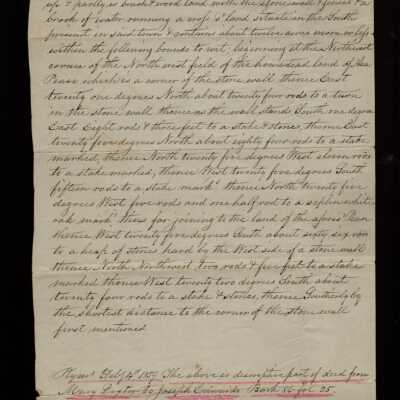 & partly as bush & wood land with the stone wall & fences & a
brook of water running a cross s'd land situate in the South
present in said town & contains about twelve acres more or less
within the following bounds to wit, beginning at the Northwest
corner of the North west field of the homestead land of
which is a corner of the stone wall thence East
twenty one degrees North about twenty four rods to a turn
in the stone wall thence as the wall stands South one degree
East Eight rods & three feet to a stake & stones, thence East
twenty five degrees North about eighty four rods to a stake
marked, thence North twenty five degrees West eleven rods
to a stake marked, thence West twenty five degrees South
fifteen rods to a stake mark'd thence North twenty five
degrees West five rods and one half rod to a white
oak mark'd joining to the land of the afores'd
thence West twenty five degrees South about sixty six rods
to a heap of stones hard by the West side of a stone wall
thence North Northwest two rods & five feet to a stake
marked thence West twenty two degrees South about
twenty four rods to a stake & stones, thence Southerly by
the shortest distance to the corner of the stone wall
first mentioned
1857 The above is descriptive part of deed from
Mary to Joseph Book 86 fol 25.